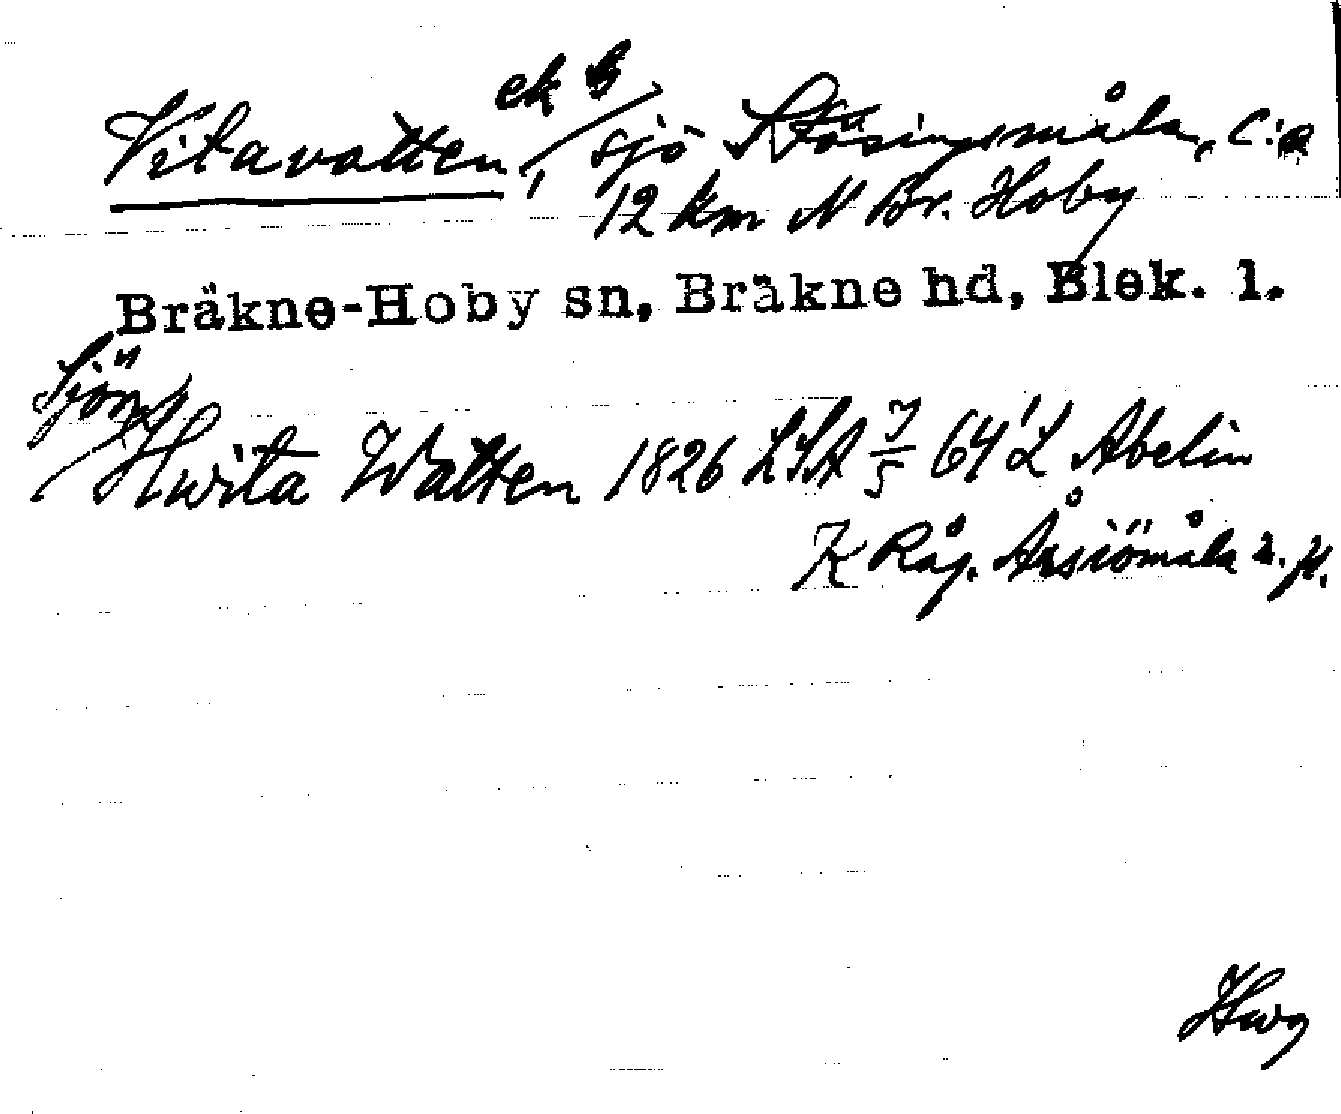 Vitavatten, ek B / sjö Stösingsmåla, c:a
12 km N Br. Hoby
Bräkne-Hoby sn, Bräkne hd, Blek. l.
Sjön
Hwita Watten 1826 LSA 7/5 64' L Abelin
K Råg. Årsiömåla